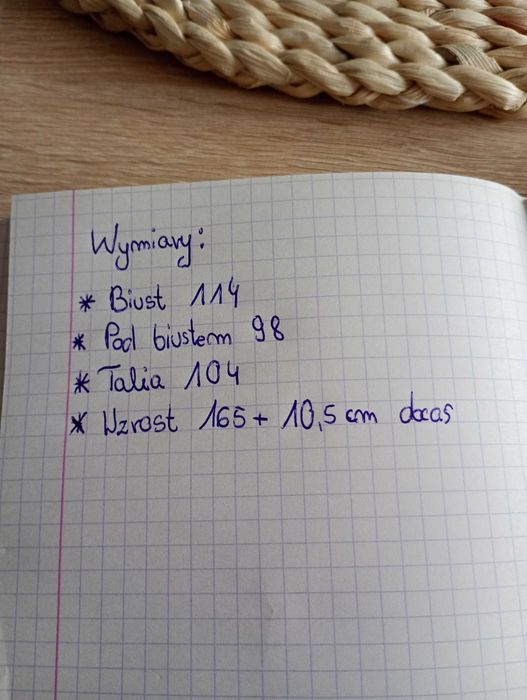 Wymiary:
* Biust 114
* Pod biustem 98
* Talia 104
* Wzrost 165 + 10,5 cm obcas